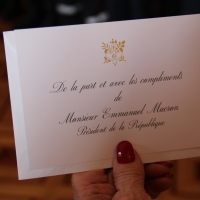 De la part et avec les compliments
de
Monsieur Emmanuel Macron
Président de la République